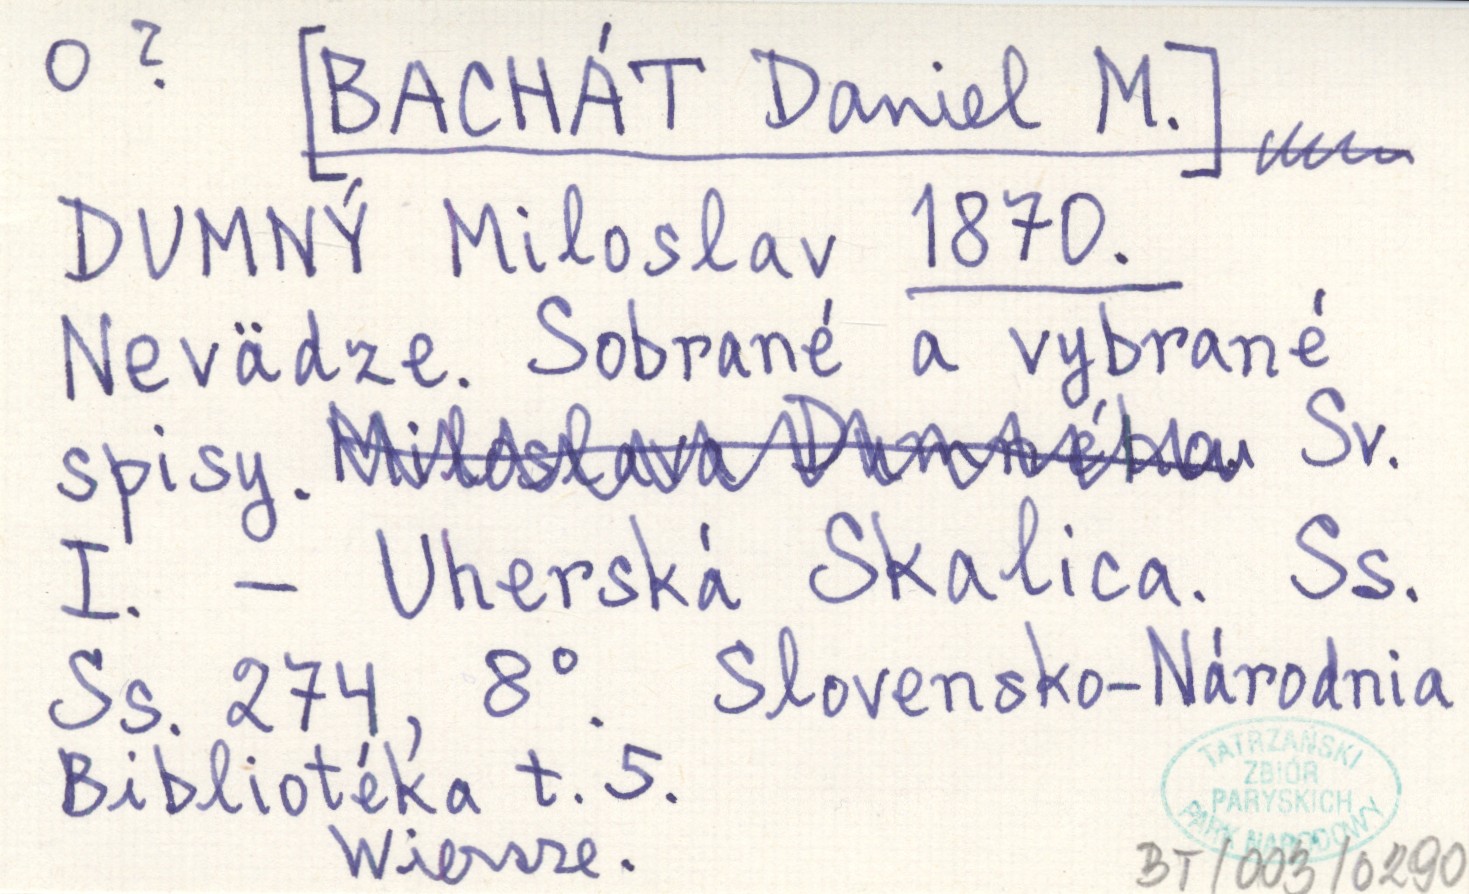 o ? [BACHÁT Daniel M.]
DUMNÝ Miloslav 1870.
Nevädze. Sobrané a vybrané
spisy. Miloslava Dumného Sv.
I. – Uherská Skalica. Ss.
Ss. 274, 8°. Slovensko-Národnia
Bibliotéka t. 5.
Wiersze.
TATRZAŃSKI
ZBIÓR
PARYSKICH
PARK NARODOWY
BT/003/0290